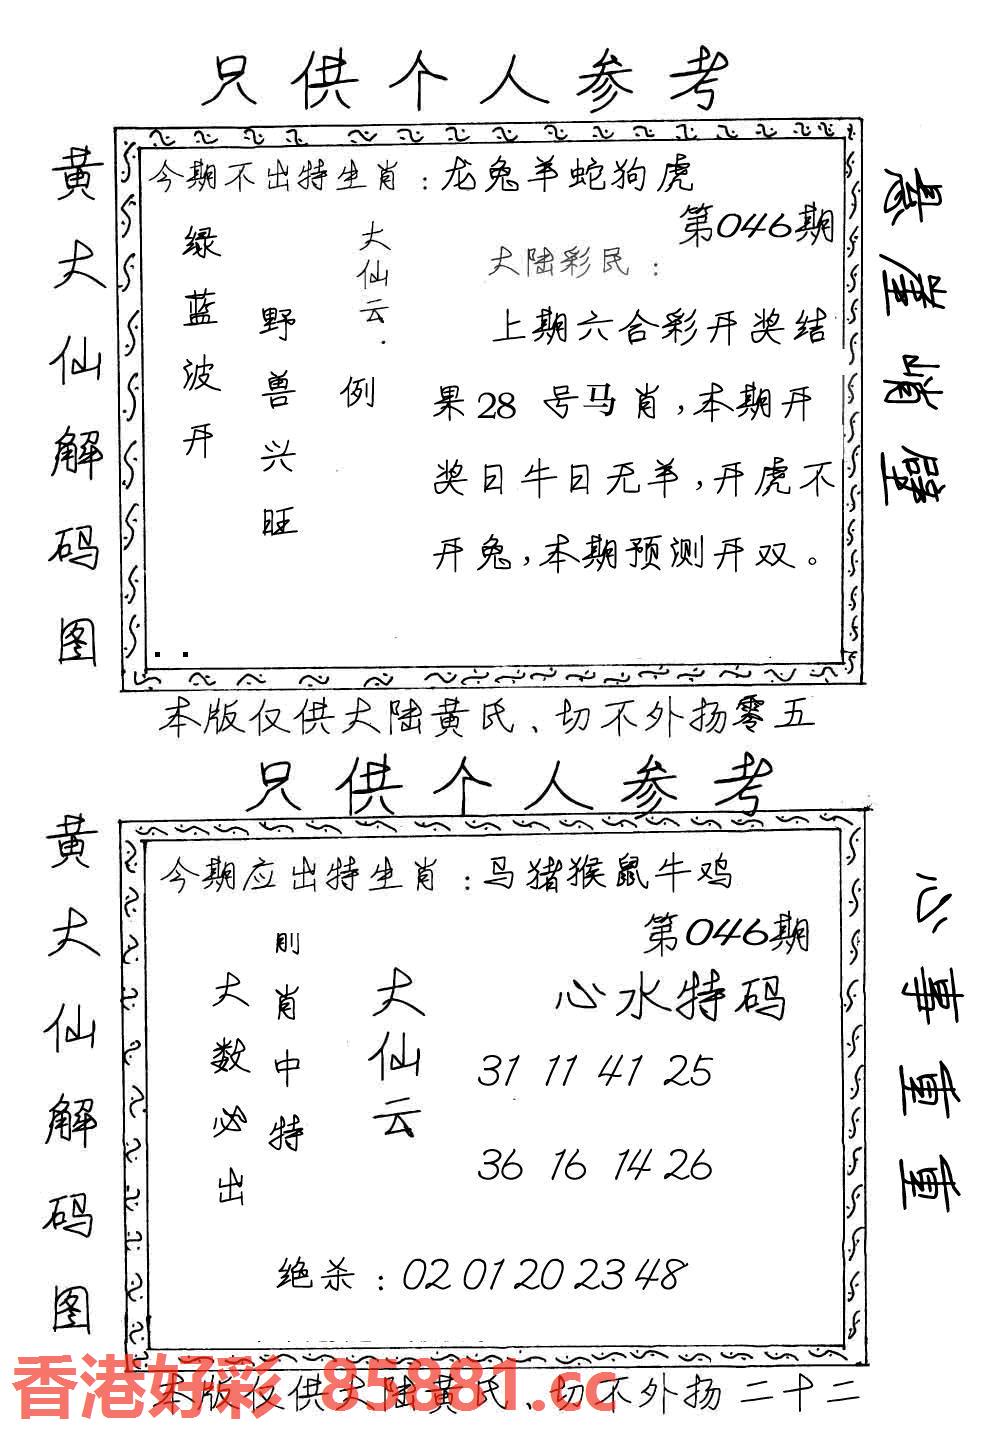 只供个人参考
黄大仙解码图
今期不出特生肖：龙兔羊蛇狗虎
第046期
大陆彩民：
上期六合彩开奖结
果28号马肖，本期开
奖日牛日无羊，开虎不
开兔，本期预测开双。
大仙云：
例
野兽兴旺
绿蓝波开
悬崖峭壁
本版仅供大陆黄氏、切不外扬零五
只供个人参考
黄大仙解码图
今期应出特生肖：马猪猴鼠牛鸡
第046期
心水特码
31 11 41 25
36 16 14 26
大仙云
刖肖中特
大数必出
绝杀：02 01 20 23 48
心事重重
本版仅供大陆黄氏、切不外扬二十二
香港好彩 85881.cc